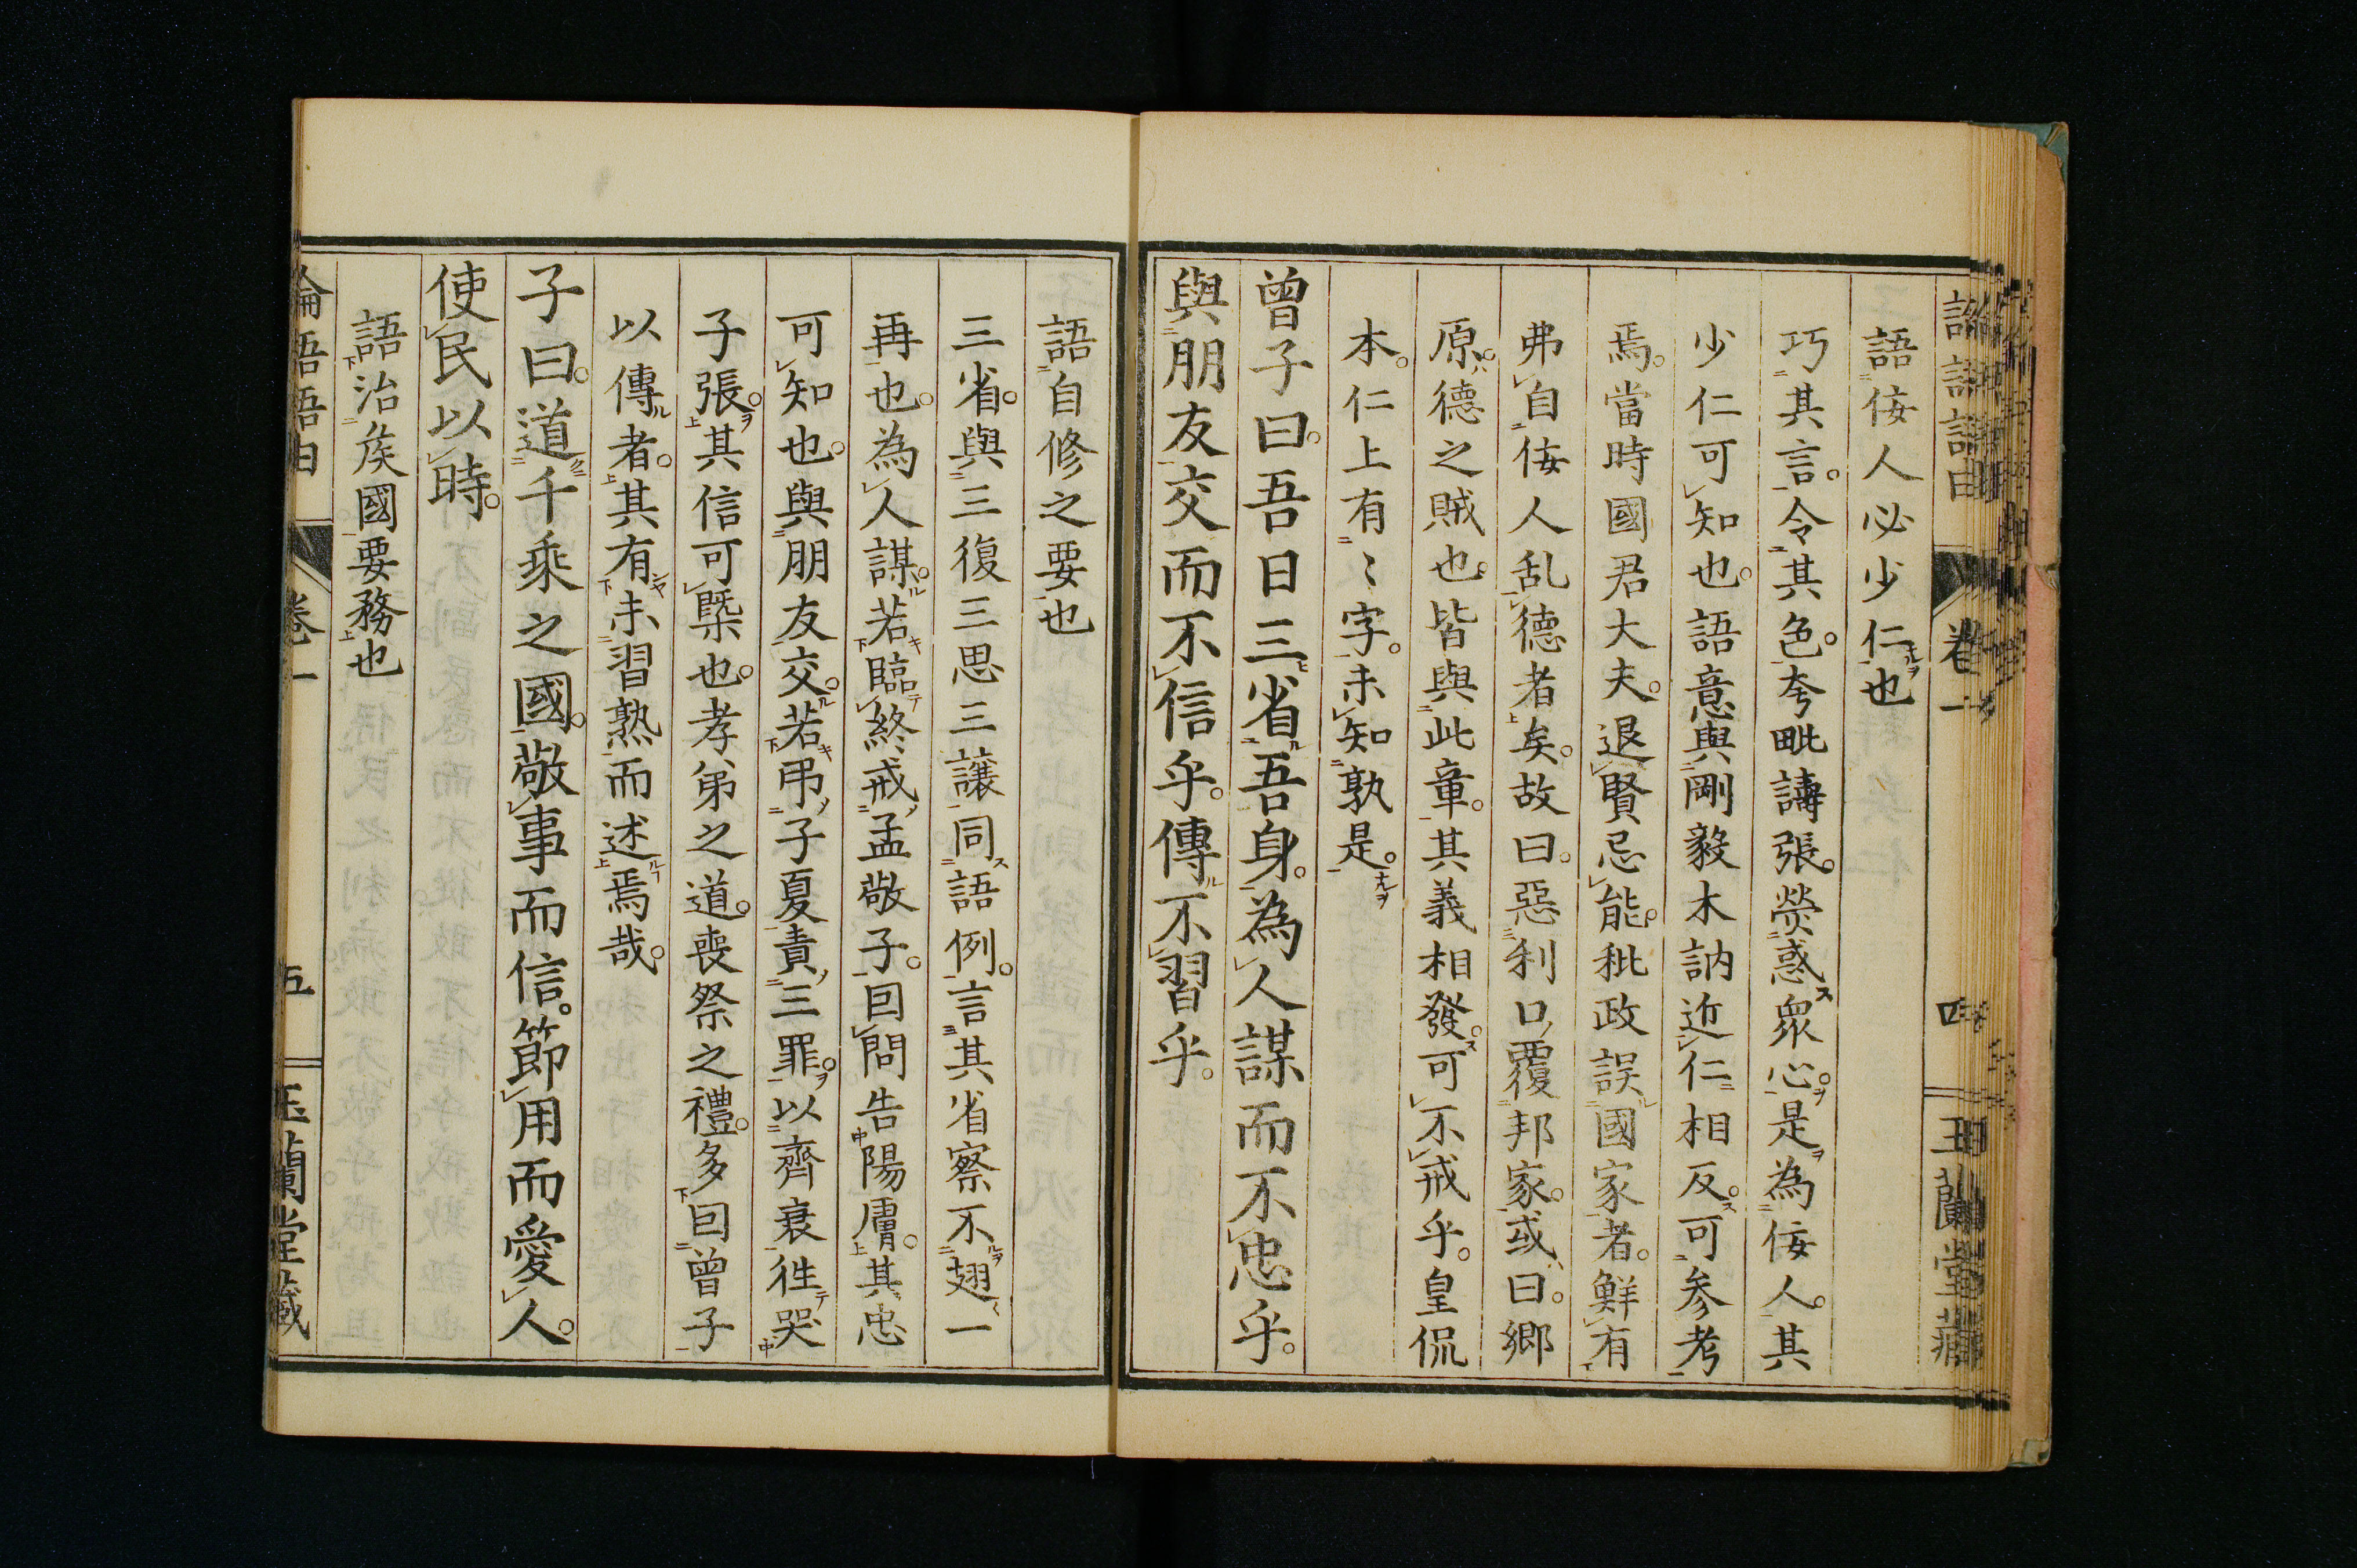 語佞人必少仁也
巧其言。令其色。夸毗譸張。熒惑衆心。是為佞人。其
少仁可知也。語意與剛毅木訥近仁相反。可參考
焉。當時國君大夫。退賢忌能。秕政誤國家者。鮮有
弗自佞人乱德者矣。故曰。惡利口覆邦家。或曰。鄉
原。德之賊也。皆與此章。其義相發。可不戒乎。皇侃
本。仁上有〻字。未知孰是。
曾子曰。吾日三省吾身。為人謀而不忠乎。
與朋友交而不信乎。傳不習乎。
卷一
四
語自修之要也
三省。與三復三思三讓同語例。言其省察不翅一
再也。為人謀。若臨終戒孟敬子。囙問告陽膚。其忠
可知也。與朋友交。若弔子夏責三罪。以齊衰徃哭
子張。其信可槩也。孝弟之道。喪祭之禮。多囙曾子
以傳者。其有未習熟而述焉哉。
子曰。道千乘之國。敬事而信。節用而愛人。
使民以時。
語治矦國要務也
論語語由
卷一
五
玉蘭堂藏